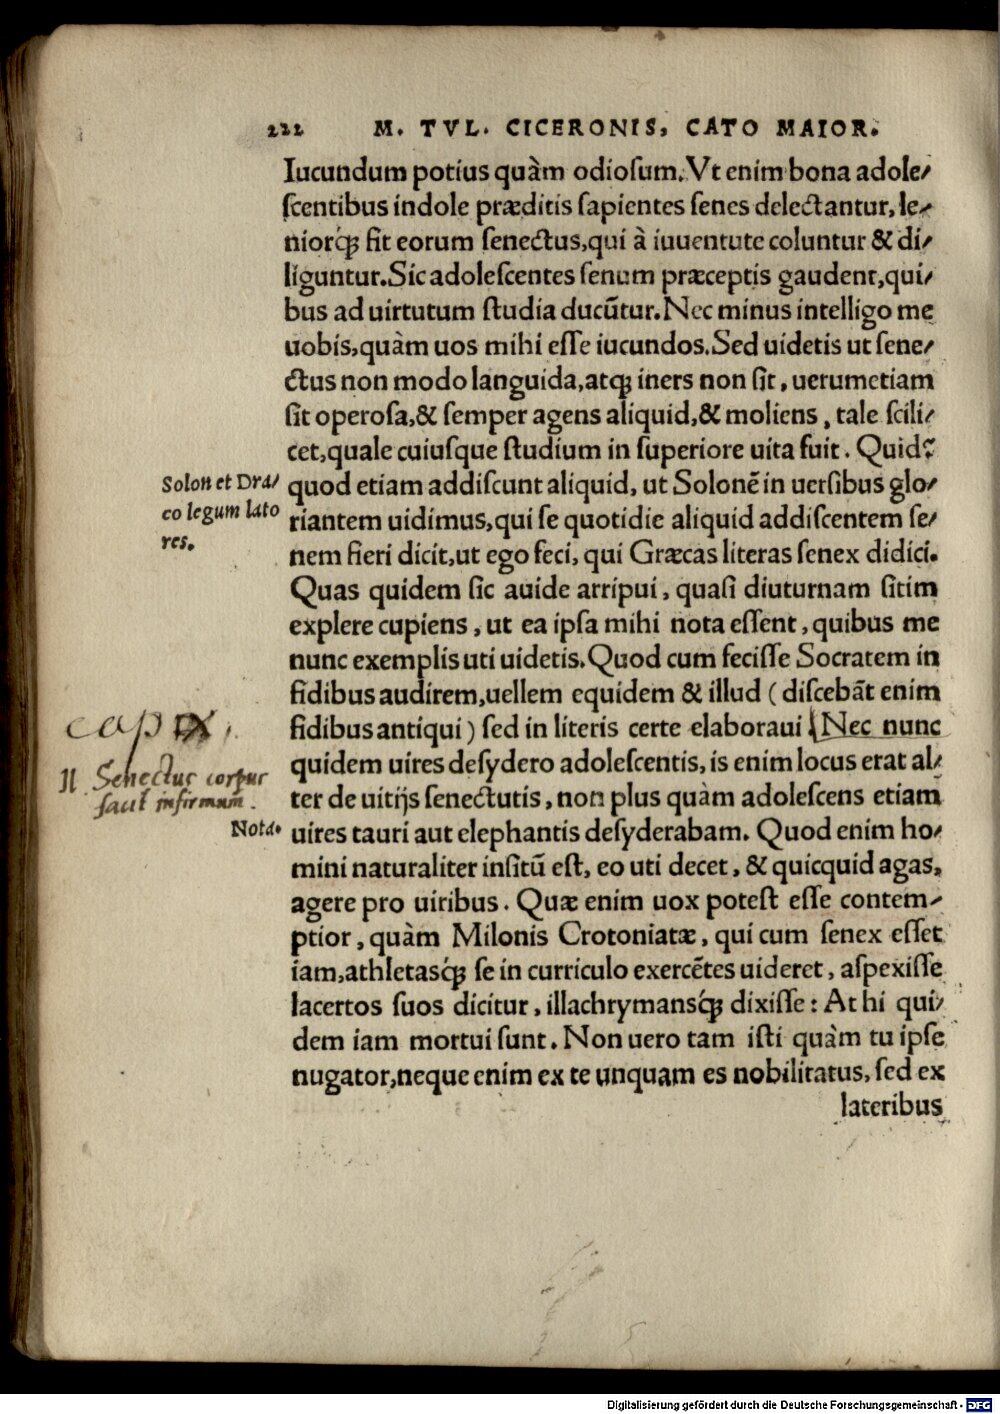 222 M. TVL. CICERONIS, CATO MAIOR.
Iucundum potius quàm odioſum. Vt enim bona adole-
ſcentibus indole præditis ſapientes ſenes delectantur, le-
niorq́ꝫ fit eorum ſenectus, qui à iuuentute coluntur & di-
liguntur. Sic adoleſcentes ſenum præceptis gaudent, qui-
bus ad uirtutum ſtudia ducũtur. Nec minus intelligo me
uobis, quàm uos mihi eſſe iucundos. Sed uidetis ut ſene-
ctus non modo languida, atqꝫ iners non ſit, uerumetiam
ſit operoſa, & ſemper agens aliquid, & moliens, tale ſcili-
cet, quale cuiuſque ſtudium in ſuperiore uita fuit. Quid?
Solon et Dra-
co legum lato
res.
quod etiam addiſcunt aliquid, ut Solonẽ in uerſibus glo-
riantem uidimus, qui ſe quotidie aliquid addiſcentem ſe-
nem fieri dicit, ut ego feci, qui Græcas literas ſenex didici.
Quas quidem ſic auide arripui, quaſi diuturnam ſitim
explere cupiens, ut ea ipſa mihi nota eſſent, quibus me
nunc exemplis uti uidetis. Quod cum feciſſe Socratem in
fidibus audirem, uellem equidem & illud (diſcebãt enim
cap IX,
fidibus antiqui) ſed in literis certe elaboraui. Nec nunc
II Senectus corpus
facit infirmum.
quidem uires deſydero adoleſcentis, is enim locus erat al-
ter de uitijs ſenectutis, non plus quàm adoleſcens etiam
Nota.
uires tauri aut elephantis deſyderabam. Quod enim ho-
mini naturaliter inſitũ eſt, eo uti decet, & quicquid agas,
agere pro uiribus. Quæ enim uox poteſt eſſe contem-
ptior, quàm Milonis Crotoniatæ, qui cum ſenex eſſet
iam, athletasq́ꝫ ſe in curriculo exercẽtes uideret, aſpexiſſe
lacertos ſuos dicitur, illachrymansq́ꝫ dixiſſe: At hi qui-
dem iam mortui ſunt. Non uero tam iſti quàm tu ipſe
nugator, neque enim ex te unquam es nobilitatus, ſed ex
lateribus
Digitalisierung gefördert durch die Deutsche Forschungsgemeinschaft - DFG